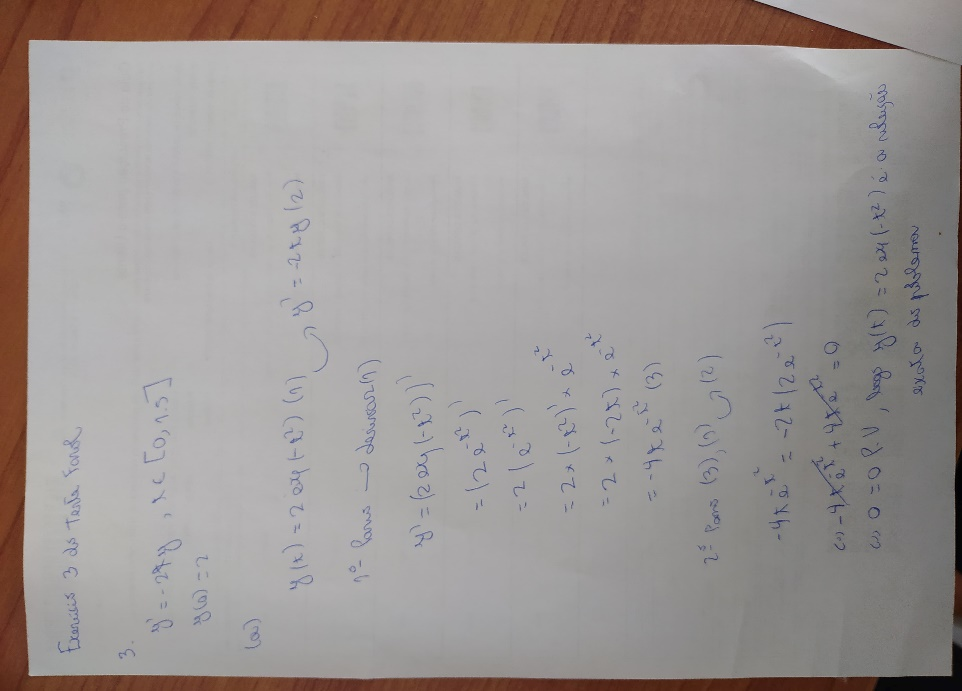 Exercício 3 do Teste Fonal
3.
y' = -2xy , x ∈ [0, 1.5]
y(0) = 2
(a)
y(x) = 2 exp(-x²) (1) y' = -2xy (2)
1º Passo → derivar (1)
y' = (2 exp(-x²))'
= (2 e^{-x²})'
= 2 (e^{-x²})'
= 2 × (-x²)' × e^{-x²}
= 2 × (-2x) × e^{-x²}
= -4x e^{-x²} (3)
2º Passo (3), (1) (2)
-4x e^{-x²} = -2x (2 e^{-x²})
⇔ -4x e^{-x²} + 4x e^{-x²} = 0
⇔ 0 = 0 P.V, logo y(x) = 2 exp(-x²) é a solução
exata do problema